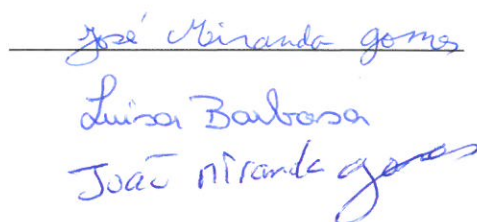 José Miranda gomes
Luisa Barbosa
João Miranda gomes